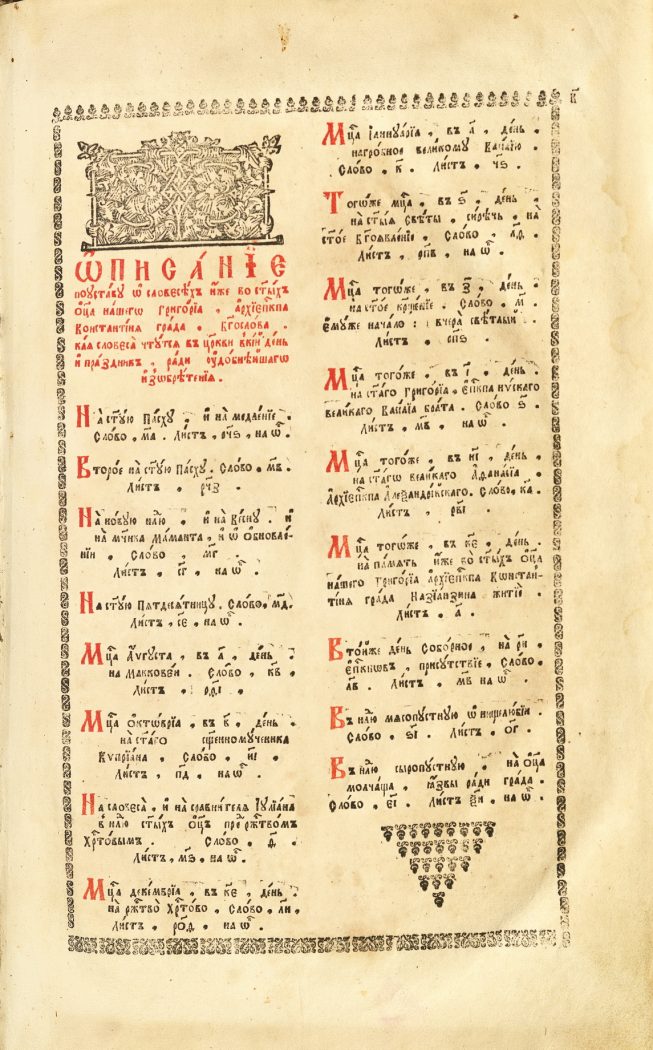 в҃
Ѿписа́нїе
поуста́ву ѡ҆ словесѣ́хъ и҆́же во ст҃ы́хъ
ѻ҆ц҃а̀ на́шегѡ григо́рїа, а҆рхїепⷭ҇кпа
константи́нѧ гра́да, бг҃осло́ва.
ка́ѧ словеса̀ чту́тсѧ въ цр҃кви вкі́й де́нь
и҆ пра́здникъ, ра́ди ᲂу҆до́бнѣйшагѡ
и҆з̾ѡбрѣ́тенїѧ.
На ст҃у́ю Па́сху, и҆ на медле́нїе.
Сло́во, м҃а. Ли́стъ, рч҃ѕ, на ѡ҆б.
Второ́е на ст҃у́ю Па́сху. Сло́во, м҃в.
Ли́стъ, рч҃з.
На но́вую нл҃ю. и҆ на весну̀. и҆
на мч҃ника Ма́манта, и҆ ѡ҆ ѡ҆бновле́-
нїи, Сло́во, м҃г.
Ли́стъ, с҃г, на ѡ҆б.
На ст҃у́ю Пѧтдесѧ́тницу. Сло́во, м҃д.
Ли́стъ, с҃е, на ѡ҆б.
Мцⷭ҇а А҆́ѵгуста, въ а҃, де́нь.
на Маккове́и. Сло́во, к҃в.
Ли́стъ, рд҃і.
Мцⷭ҇а Ѻ҆ктѡ́врїа, въ в҃, де́нь.
на ст҃а́го сщ҃енному́ченика
Кѷпрїа́на, Сло́во, и҃і.
Ли́стъ, п҃д, на ѡ҆б.
На словеса̀, и҆ на сравни́телѧ І҆ꙋлїа́на
в нл҃ю ст҃ы́хъ ѻ҆ц҃ъ пре рж҃тво́мъ
Хрⷭ҇то́вымъ. Сло́во, д҃.
Ли́стъ, м҃ѕ, на ѡ҆б.
Мцⷭ҇а деке́мврїа, въ к҃е, де́нь.
на рж҃тво̀ Хрⷭ҇то́во, Сло́во, л҃и,
Ли́стъ, ро҃д, на ѡ҆б.
Мцⷭ҇а і҆аннꙋа́рїа, въ а҃, де́нь.
нагро́бное вели́кому Васи́лїю.
Сло́во, к҃. Ли́стъ, ч҃ѕ.
Тогѡ́же мцⷭ҇а, въ ѕ҃, де́нь.
на ст҃ы́ѧ свѣ́ты. си́рѣчь, на
ст҃о́е Бг҃оѧвле́нїе. Сло́во, л҃ѳ.
Ли́стъ, рп҃в, на ѡ҆б.
Мцⷭ҇а тогѡ́же, въ з҃, де́нь.
на ст҃о́е крⷭ҇ще́нїе. Сло́во, м҃.
є҆му́же нача́ло: вчера̀ свѣ́тлый
Ли́стъ, рп҃ѕ.
Мцⷭ҇а тогѡ́же, въ і҃, де́нь.
на ст҃а́го григо́рїа, є҆пⷭ҇кпа нѵ́скаго
вели́каго Васи́лїа бра́та. Сло́во ѕ҃.
Ли́стъ, м҃в, на ѡ҆б.
Мцⷭ҇а тогѡ́же, въ и҃і, де́нь.
на ст҃а́гѡ вели́каго А҆ѳана́сїа,
А҆рхїепⷭ҇кпа А҆леѯандрі́йскаго. Сло́во, к҃а.
Ли́стъ, рв҃і.
Мцⷭ҇а тогѡ́же, въ к҃е, де́нь.
на па́мѧть и҆́же во ст҃ы́хъ ѻ҆ц҃а̀
на́шего григо́рїа а҆рхїепⷭ҇кпа Константі-
ті́нѧ гра́да Назїа́нзина житїѐ.
Ли́стъ, а҃.
Вто́йже де́нь собо́рное, на ри҃
є҆пⷭ҇кпѡвъ, прису́тствїе. Сло́во
л҃в. Ли́стъ, м҃в на ѡ҆б.
Въ нл҃ю мѧсопу́стную, ѡ҆ нищелю́бїи.
Сло́во, ѕ҃і. Ли́стъ, о҃г.
Въ нл҃ю сыропу́стную. на ѻ҆ц҃а̀
молча́ща, ꙗ҆́звы ра́ди гра́да.
Сло́во, е҃і. Ли́стъ ѯ҃и, на ѡ҆б.